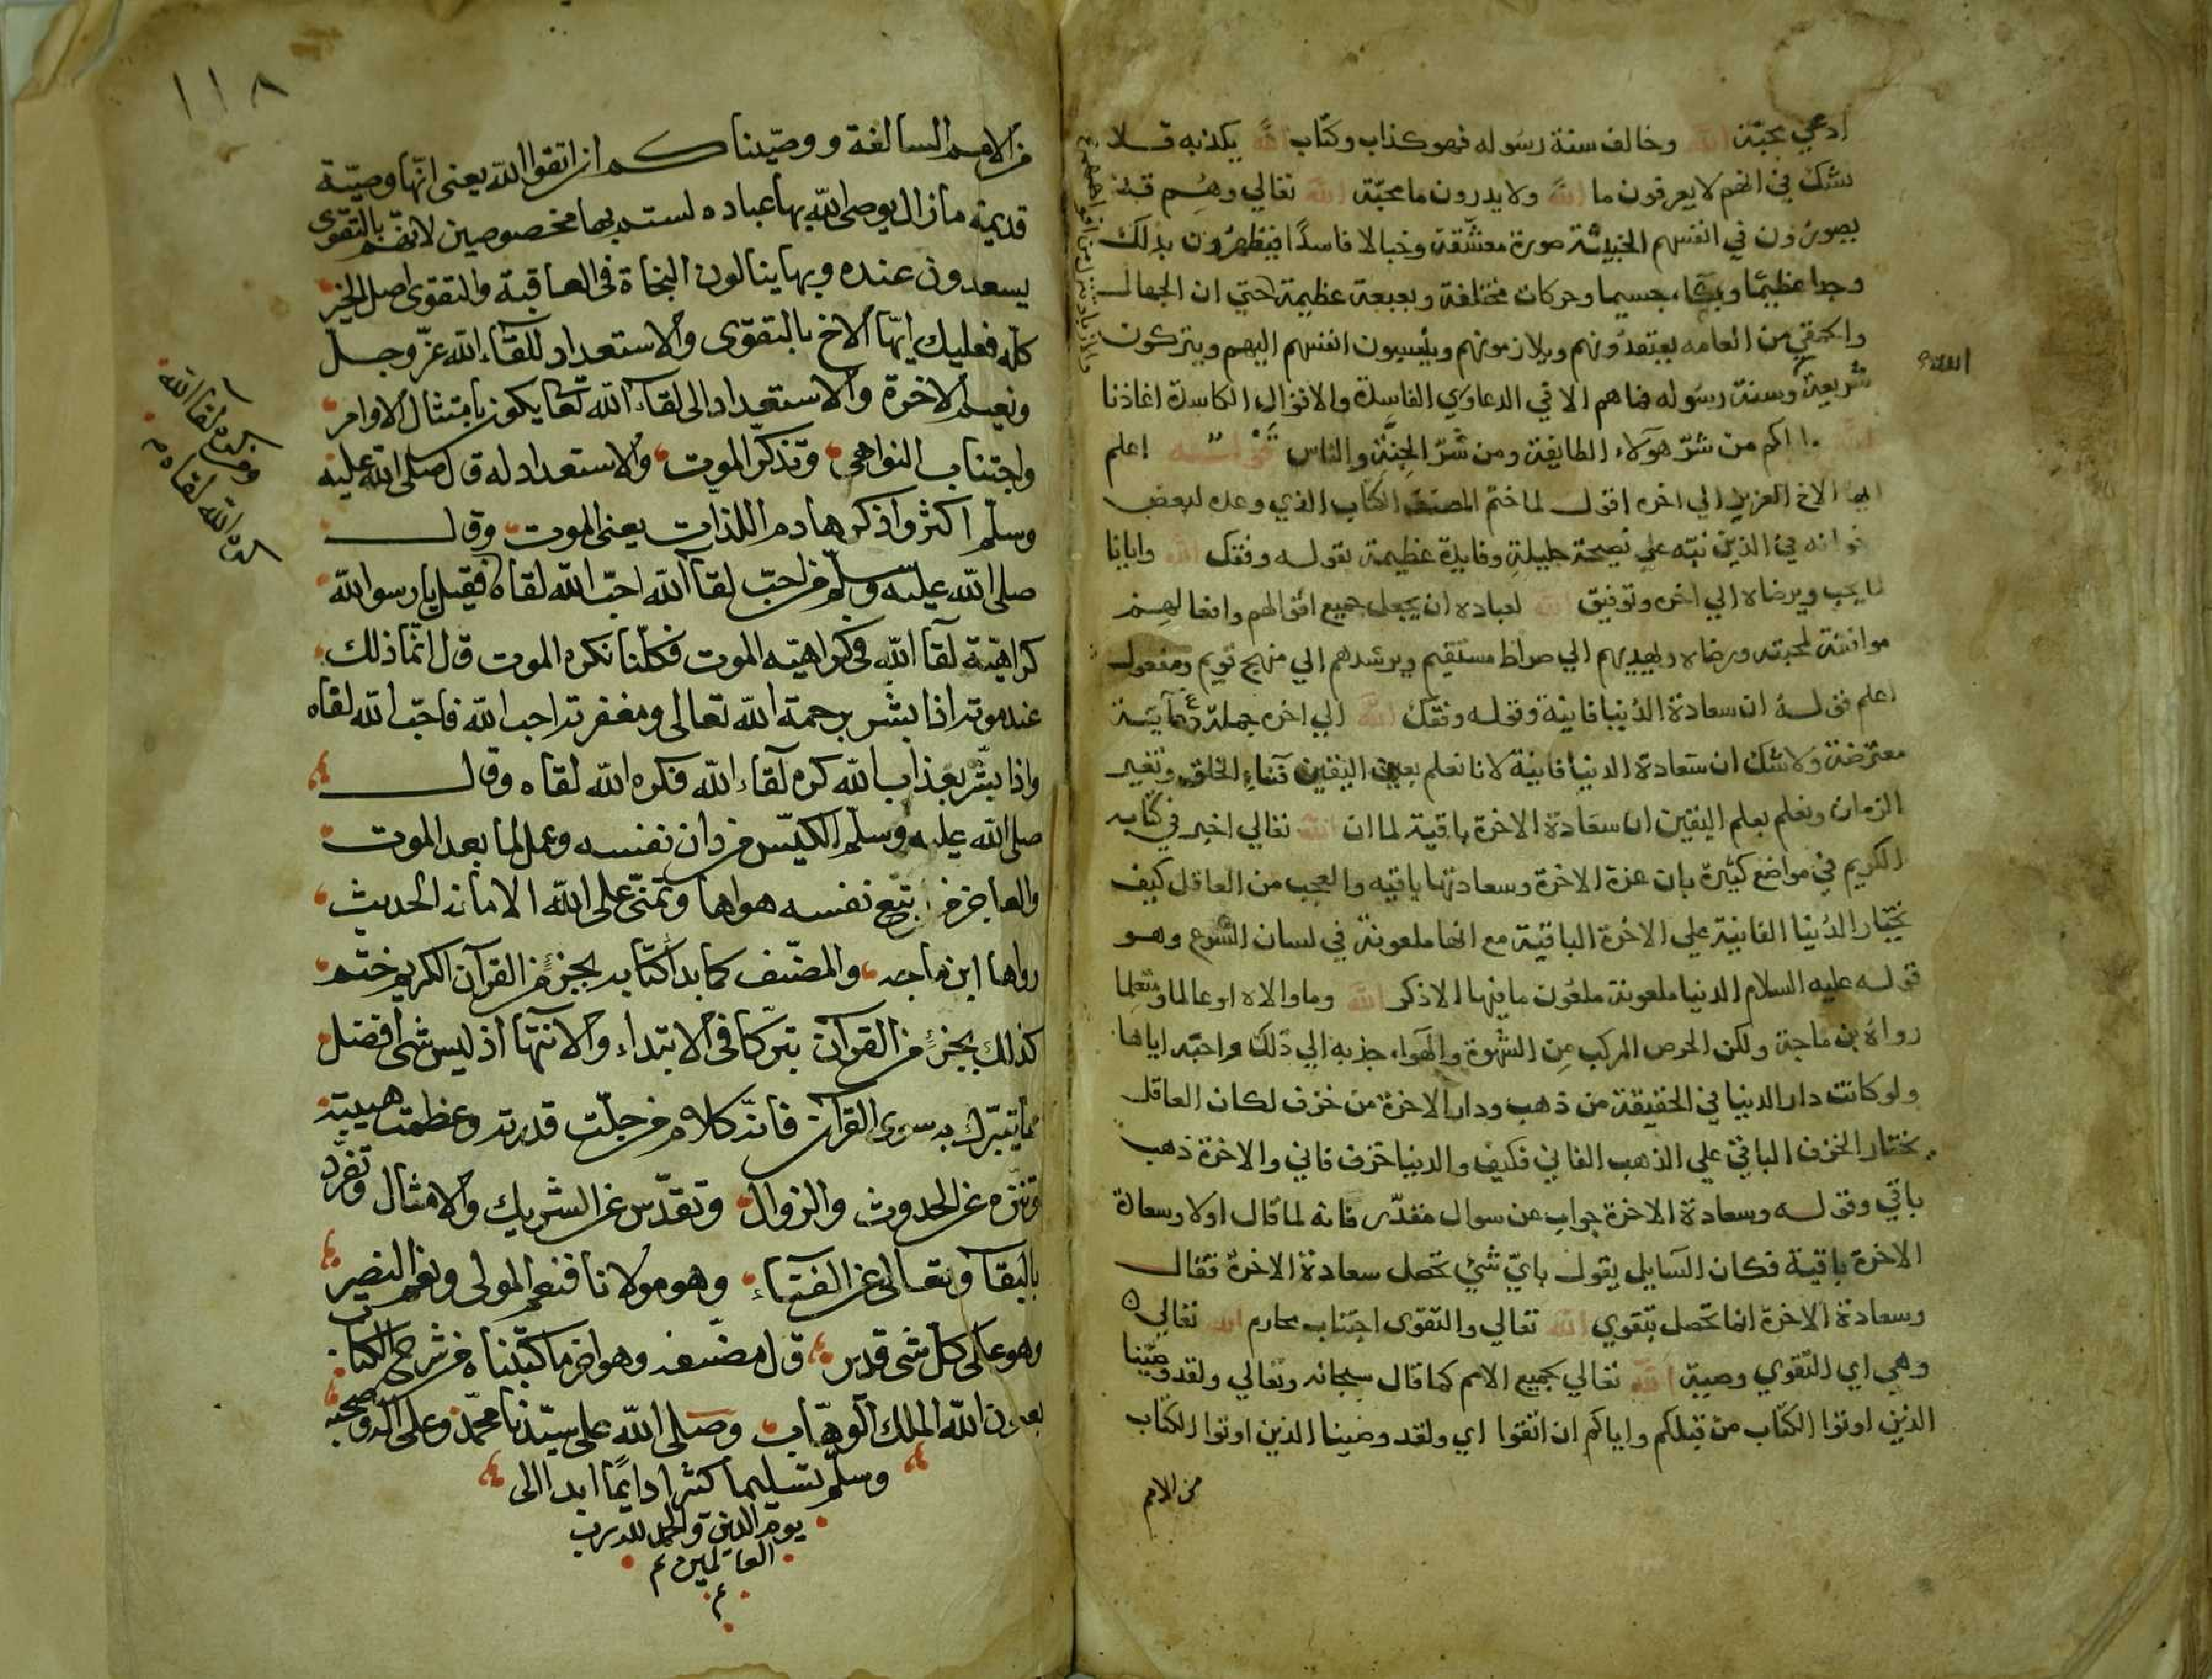 ادعي محبة الله وخالف سنة رسوله فهو كذاب وكتاب الله يكذبه فلا
شك في انهم لا يعرفون ما الله ولا يدرون ما محبة الله تعالي وهم قد
يصورون في انفسهم الخبيثة صورة معشقة وخيالا فاسدا فيظهرون بذلك
وجدا عظيما وبكاء جسيما وحركات مختلفة وبعبعة عظيمة حتي ان الجهال
والحمقي من العامه يعتقدونهم ويلازمونهم وينسبون انفسهم اليهم ويتركون
شريعة وسنة رسوله فما هم الا في الدعاوي الفاسدة والاقوال الكاسدة اعاذنا
الله واياكم من شر هولاء الطايفة ومن شر الجنة والناس قوله اعلم
ايها الاخ العزيز الي اخره اقول لما ختم المصنف الكتاب الذي وعده لبعض
اخوانه في الدين نبه علي نصيحة جليلة وفايدة عظيمة بقوله وفقك الله وايانا
لما يحب ويرضاه الي اخره وتوفيق الله لعباده ان يجعل جميع اقوالهم وافعالهم
موافقة لمحبته ورضاه ويهديهم الي صراط مستقيم ويرشدهم الي منهج قويم ومفعول
اعلم قوله ان سعادة الدنيا فانية وقوله وفقك الله الي اخره جملة دعائية
معترضة ولا شك ان سعادة الدنيا فانية لانا نعلم بعين اليقين فناء الخلق وتغير
الزمان ونعلم بعلم اليقين ان سعادة الاخرة باقية لما ان الله تعالي اخبر في كتابه
الكريم في مواضع كثيرة بان عزة الاخرة وسعادتها باقيه والعجب من العاقل كيف
يختار الدنيا الفانية علي الاخرة الباقية مع انها ملعونة في لسان الشرع وهو
قوله عليه السلام الدنيا ملعونة ملعون ما فيها الا ذكر الله وما والاه او عالما ومتعلما
رواه بن ماجة ولكن الحرص المركب من الشهوة والهواء جذبه الي ذلك واحبه اياها
ولو كانت دار الدنيا في الحقيقة من ذهب ودار الاخرة من خزف لكان العاقل
يختار الخزف الباقي علي الذهب الفاني فكيف والدنيا خزف فاني والاخرة ذهب
باقي وقوله وسعادة الاخرة جواب عن سوال مقدر فانه لما قال اولا وسعادة
الاخرة باقية فكان السايل يقول باي شي تحصل سعادة الاخرة فقال
وسعادة الاخرة انما تحصل بتقوي الله تعالي والتقوي اجتناب محارم الله تعالي
وهي اي التقوي وصية الله تعالي لجميع الامم كما قال سبحانه وتعالي ولقد وصينا
الذين اوتوا الكتاب من قبلكم واياكم ان اتقوا اي ولقد وصينا الذين اوتوا الكتاب
من الامم
١١٨
من الامم السالفة ووصيناكم ان اتقوا الله يعنى انها وصية
قديمة ما زال يوصى الله بها عباده لستم بها مخصوصين لانهم بالتقوى
يسعدون عنده وبها ينالون النجاة فى العاقبة والتقوى اصل الخير
كله فعليك ايها الاخ بالتقوى والاستعداد للقاء الله عز وجل
ونعيم الاخرة والاستعداد الى لقاء الله تعا يكون بامتثال الاوامر
واجتناب النواهى وتذكر الموت والاستعداد له قال صلى الله عليه
وسلم اكثروا ذكر هادم اللذات يعنى الموت وقال
صلى الله عليه وسلم من احب لقاء الله احب الله لقاه فقيل يا رسول الله
كراهية لقاء الله فى كراهية الموت فكلنا نكره الموت قال انما ذلك
عند موته اذا بشر برحمة الله تعالى ومغفرته احب الله فاحب الله لقاه
واذا بشر بعذاب الله كره لقاء الله فكره الله لقاه وقال
صلى الله عليه وسلم الكيس من دان نفسه وعمل لما بعد الموت
والعاجز من اتبع نفسه هواها وتمنى على الله الامانى الحديث
رواها ابن ماجه والمصنف كما بدا كتابه بجزء من القرآن الكريم ختم
كذلك بجزء من القرآن تبركا فى الابتداء والانتها اذ ليس شى افضل
مما يتبرك به سوى القرآن فانه كلام من جلت قدرته وعظمت هيبته
وتنزه عن الحدوث والزوال وتقدس عن الشريك والامثال وتفرد
بالبقا وتعالى عن الفناء وهو مولانا فنعم المولى ونعم النصير
وهو على كل شى قدير قال مصنفه وهو اخر ما كتبناه من شرح الكتاب
بعون الله الملك الوهاب وصلى الله على سيدنا محمد وعلى اله وصحبه
وسلم تسليما كثيرا دايما ابدا الى
يوم الدين والحمد لله رب
العالمين م
م
ومن كره لقا الله
كره الله لقاه م